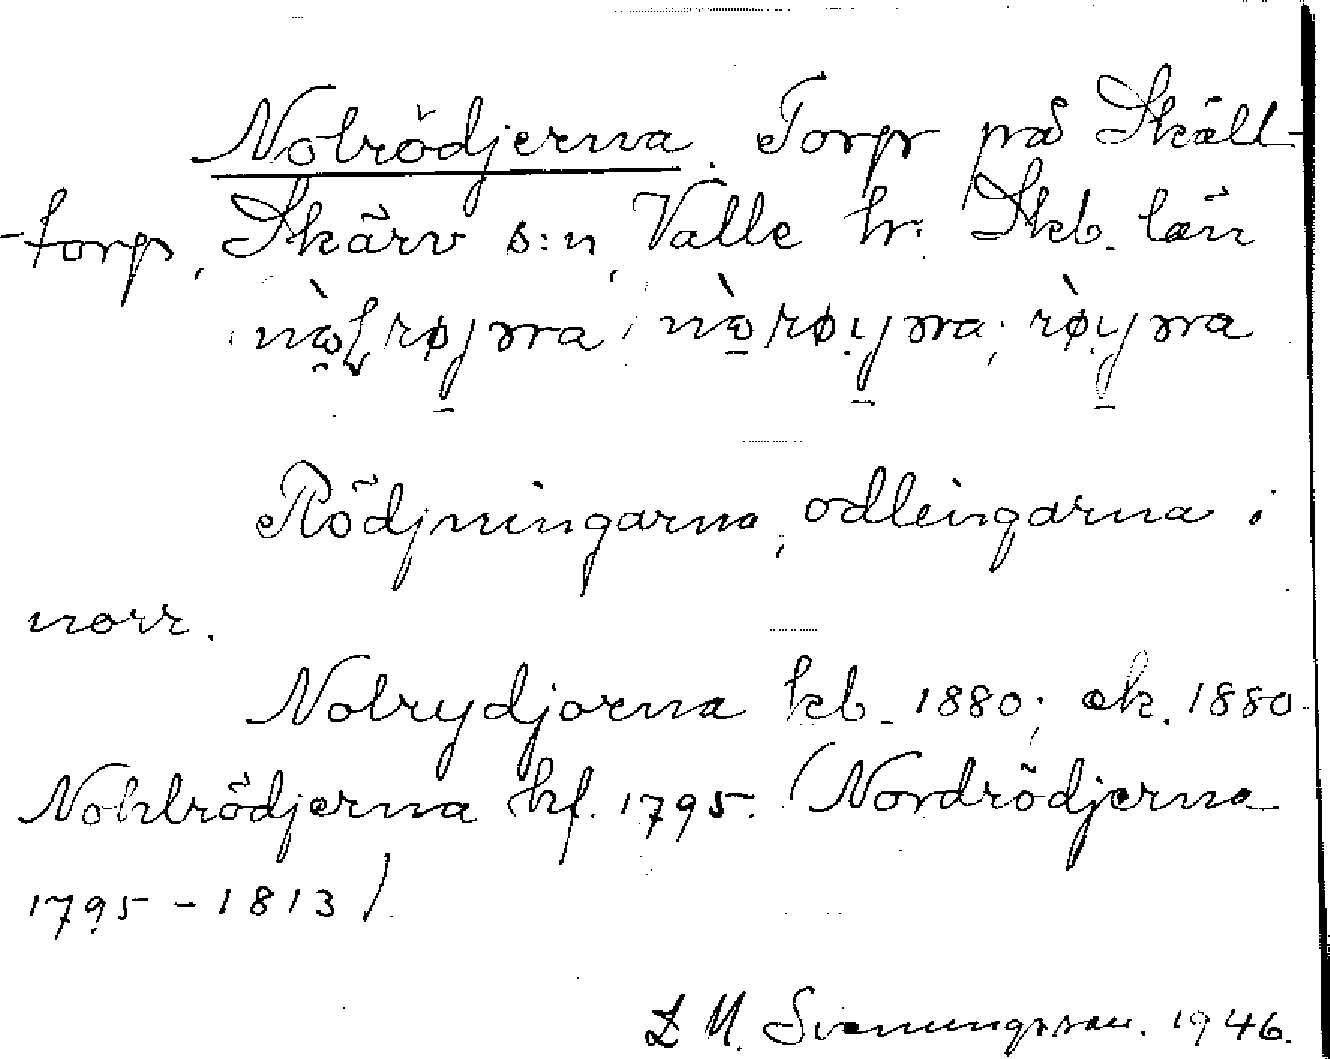 Nolrödjerna. Torp på Skäll-
-torp, Skärv s:n, Valle hr. Skb. län
rø̀yna
Rödjningarna, odlingarna i
norr.
Nolrydjorna kb. 1880; ek. 1880.
Nohlrödjerna hf. 1795. (Nordrödjerna
1795-1813)
Svenungsson. 1946.